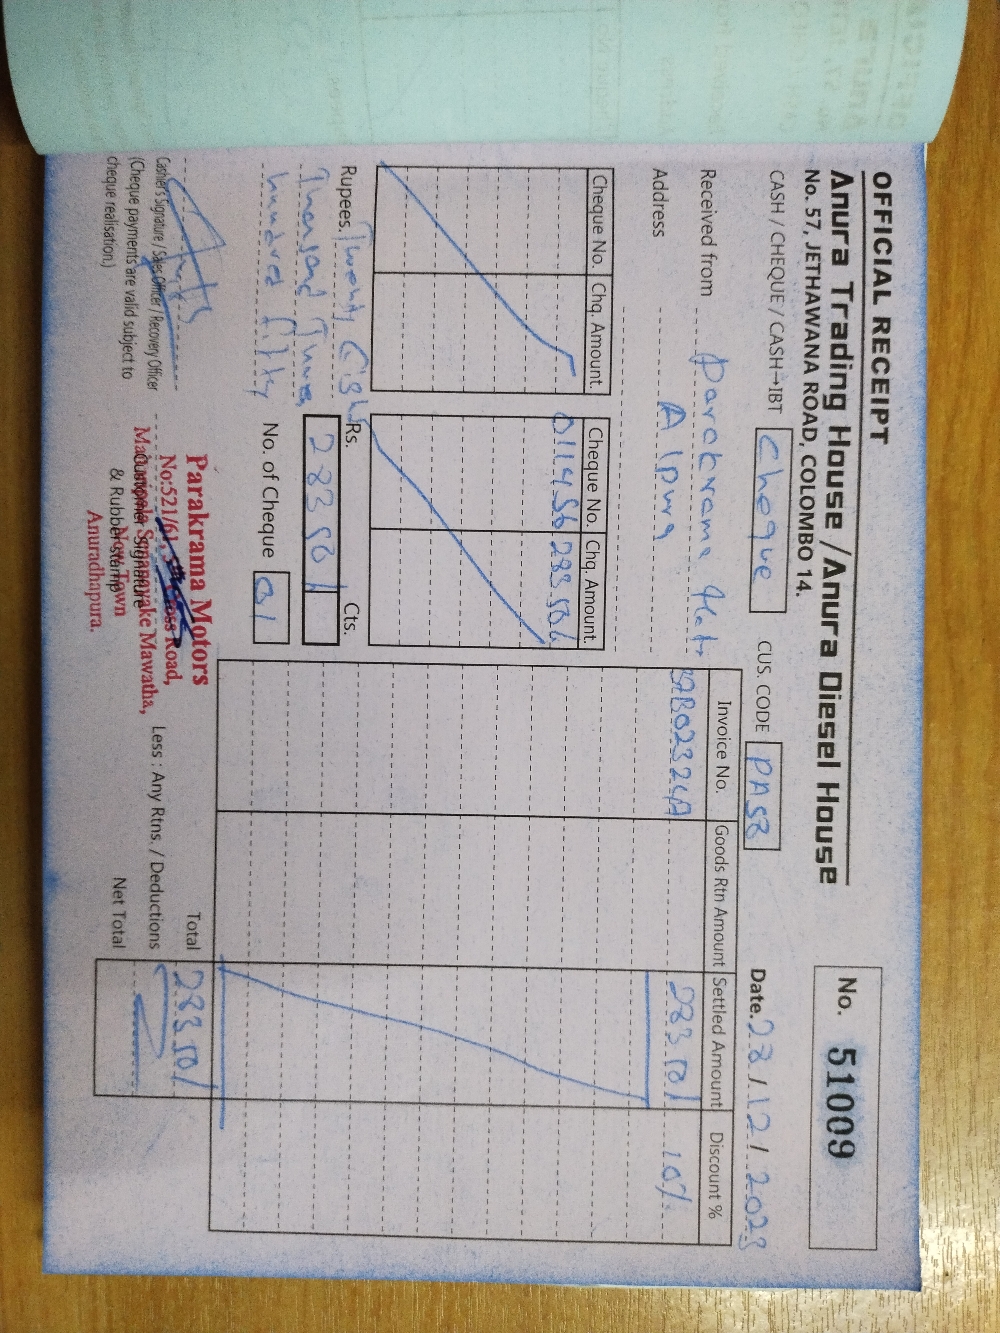 OFFICIAL RECEIPT
Anura Trading House / Anura Diesel House
No. 57, JETHAWANA ROAD, COLOMBO 14.
No. 51009
CASH / CHEQUE / CASH→IBT Cheque CUS. CODE PA58 Date. 28/12/2023
Received from Parakrama Motr
Address A/pura
Cheque No. Chq. Amount. Cheque No. Chq. Amount.
011456 28350/
Invoice No. Goods Rtn Amount Settled Amount Discount %
28350/ 10%
Rupees. Twenty Eight
Thousand Three
hundred fifty
Rs. Cts.
28350/
No. of Cheque 01
Cashier's Signature / Sales Officer / Recovery Officer
(Cheque payments are valid subject to
cheque realisation.)
Parakrama Motors
No:521/61, Cross Road,
Senanayake Mawatha,
New Town
Anuradhapura.
Customer Signature
& Rubber stamp
Total 28350/
Less : Any Rtns. / Deductions
Net Total